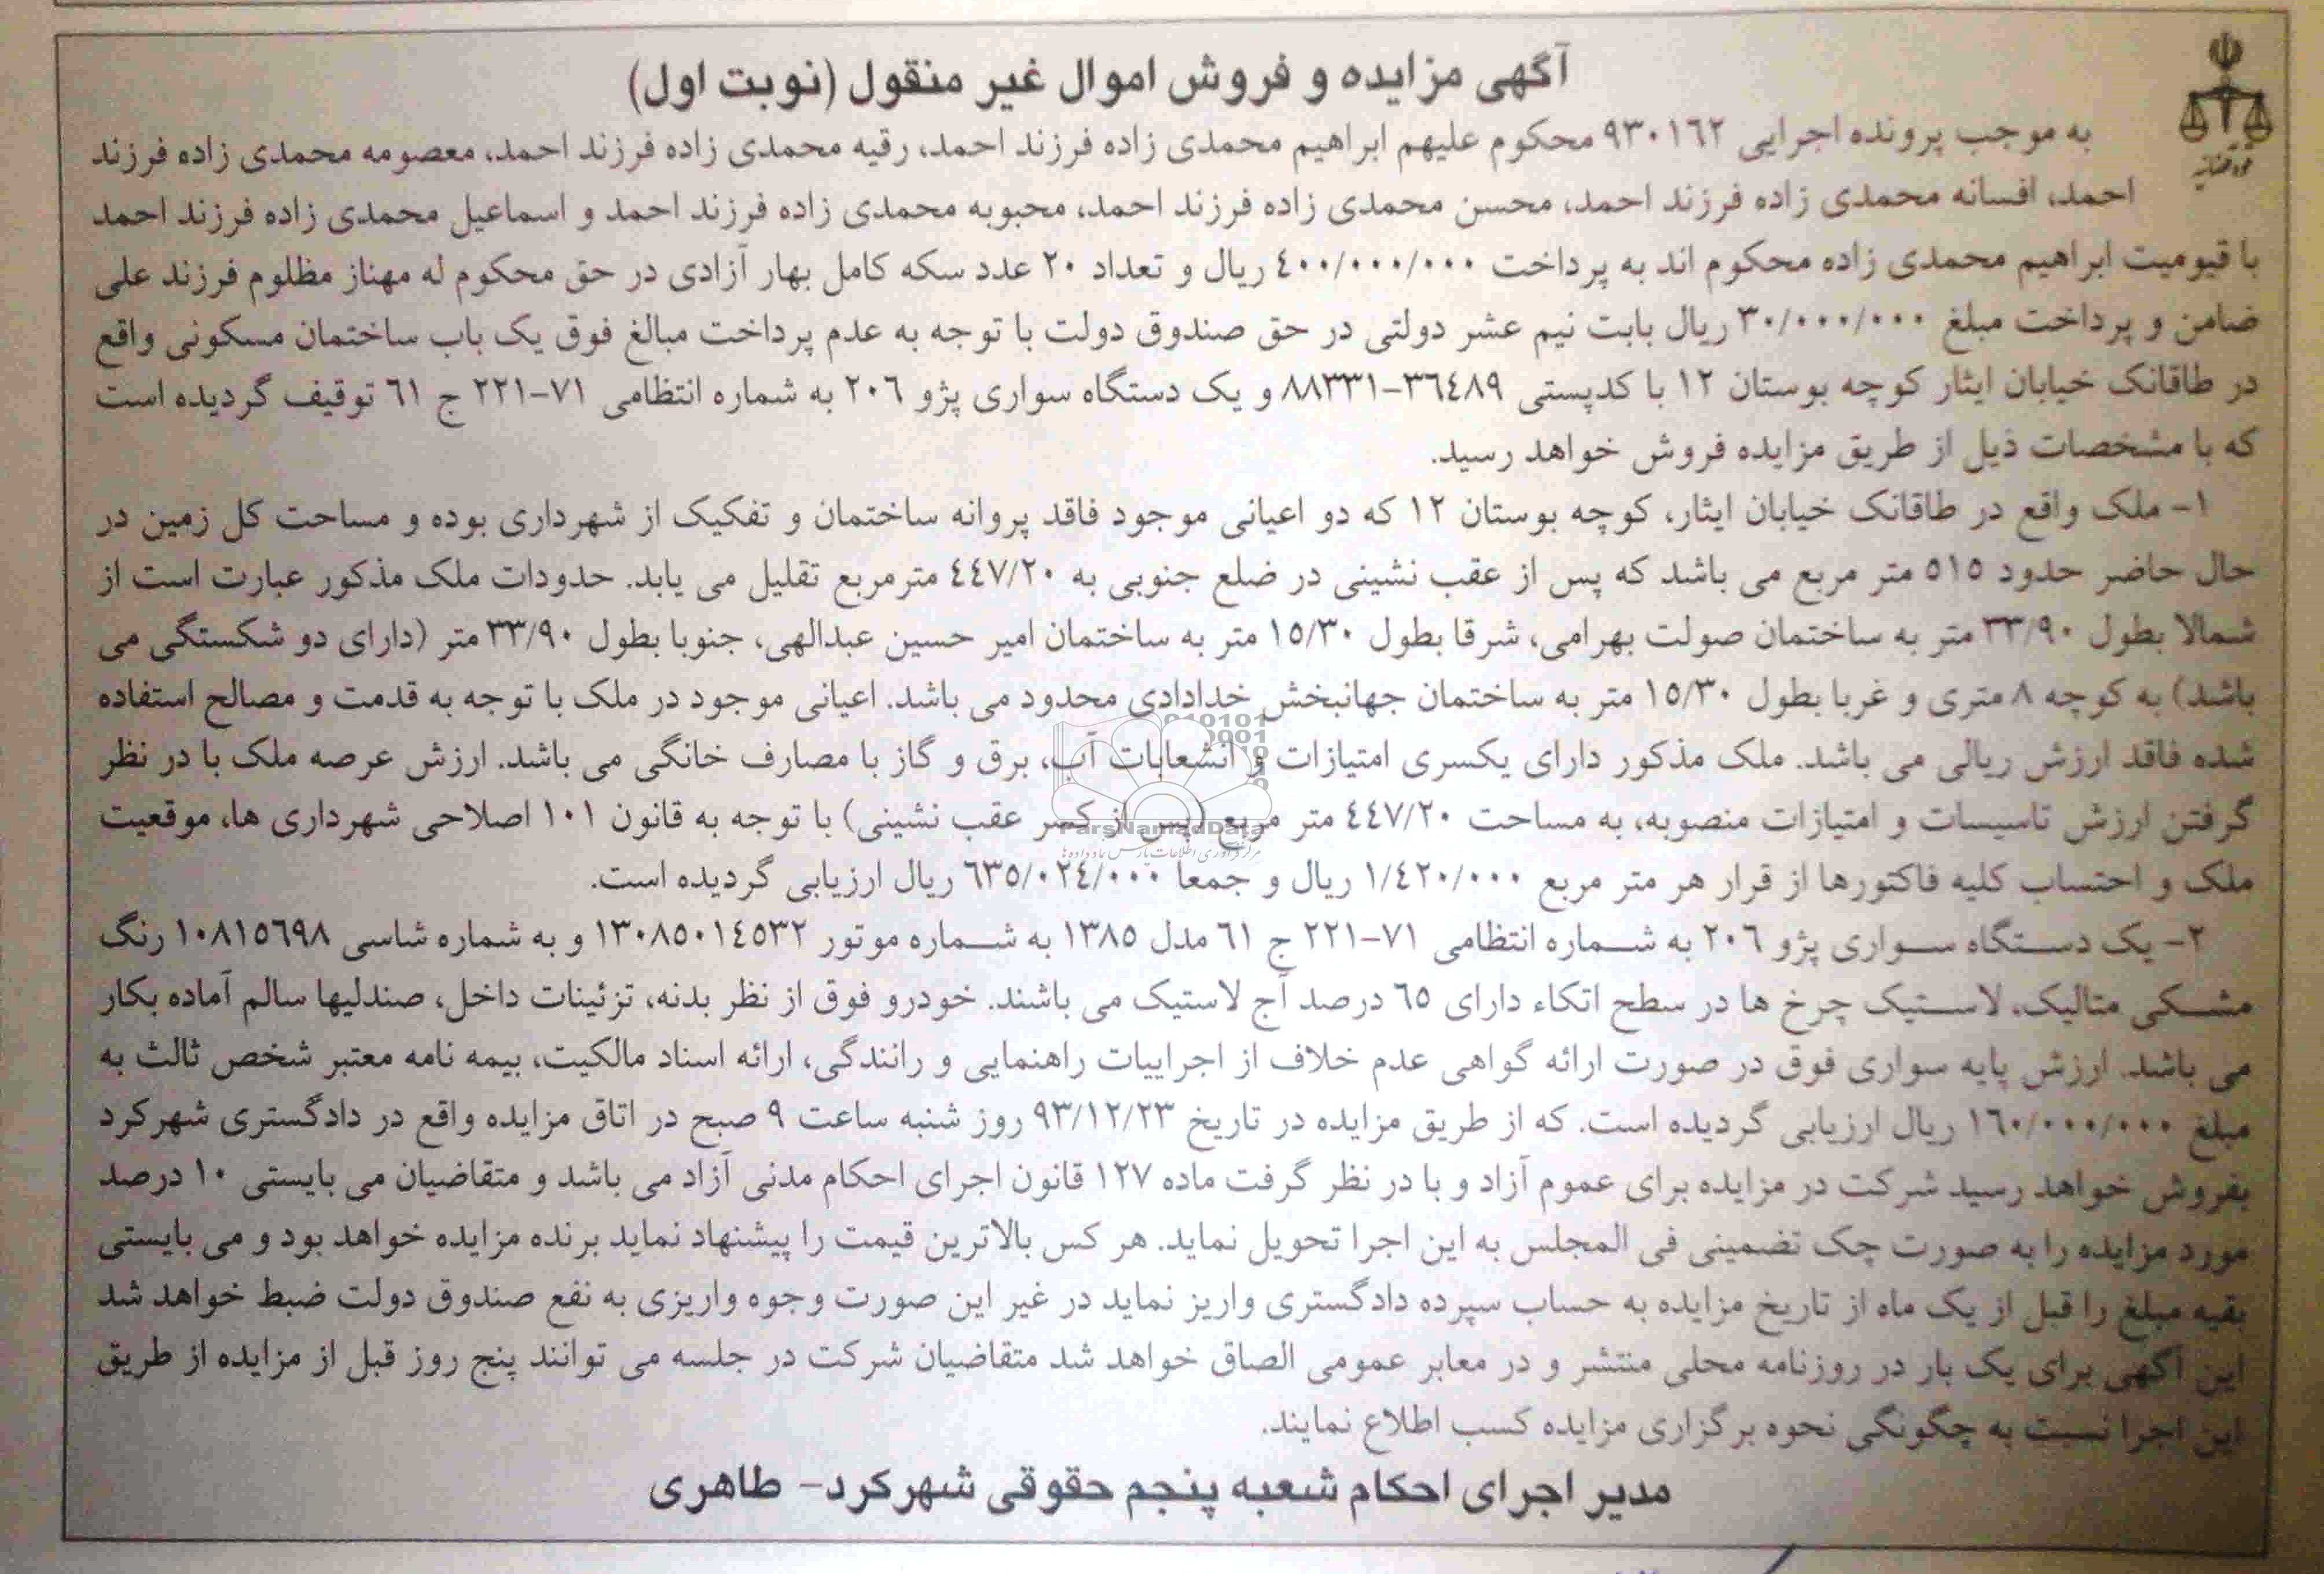 آگهی مزایده و فروش اموال غیر منقول (نوبت اول)
به موجب پرونده اجرایی ۹۳۰۱٦۲ محکوم علیهم ابراهیم محمدی زاده فرزند احمد، رقیه محمدی زاده فرزند احمد، معصومه محمدی زاده فرزند
احمد، افسانه محمدی زاده فرزند احمد، محسن محمدی زاده فرزند احمد، محبوبه محمدی زاده فرزند احمد و اسماعیل محمدی زاده فرزند احمد
با قیومیت ابراهیم محمدی زاده محکوم اند به پرداخت ٤۰۰/۰۰۰/۰۰۰ ریال و تعداد ۲۰ عدد سکه کامل بهار آزادی در حق محکوم له مهناز مظلوم فرزند علی
ضامن و پرداخت مبلغ ۳۰/۰۰۰/۰۰۰ ریال بابت نیم عشر دولتی در حق صندوق دولت با توجه به عدم پرداخت مبالغ فوق یک باب ساختمان مسکونی واقع
در طاقانک خیابان ایثار کوچه بوستان ۱۲ با کدپستی ۳٦٤۸۹-۸۸۳۳۱ و یک دستگاه سواری پژو ۲۰٦ به شماره انتظامی ۷۱-۲۲۱ ج ٦۱ توقیف گردیده است
که با مشخصات ذیل از طریق مزایده فروش خواهد رسید.
۱- ملک واقع در طاقانک خیابان ایثار، کوچه بوستان ۱۲ که دو اعیانی موجود فاقد پروانه ساختمان و تفکیک از شهرداری بوده و مساحت کل زمین در
حال حاضر حدود ٥۱٥ متر مربع می باشد که پس از عقب نشینی در ضلع جنوبی به ٤٤۷/۲۰ مترمربع تقلیل می یابد. حدودات ملک مذکور عبارت است از
شمالا بطول ۳۳/۹۰ متر به ساختمان صولت بهرامی، شرقا بطول ۱٥/۳۰ متر به ساختمان امیر حسین عبدالهی، جنوبا بطول ۳۳/۹۰ متر (دارای دو شکستگی می
باشد) به کوچه ۸ متری و غربا بطول ۱٥/۳۰ متر به ساختمان جهانبخش خدادادی محدود می باشد. اعیانی موجود در ملک با توجه به قدمت و مصالح استفاده
شده فاقد ارزش ریالی می باشد. ملک مذکور دارای یکسری امتیازات و انشعابات آب، برق و گاز با مصارف خانگی می باشد. ارزش عرصه ملک با در نظر
گرفتن ارزش تاسیسات و امتیازات منصوبه، به مساحت ٤٤۷/۲۰ متر مربع (پس از کسر عقب نشینی) با توجه به قانون ۱۰۱ اصلاحی شهرداری ها، موقعیت
ParsNamadData
ملک و احتساب کلیه فاکتورها از قرار هر متر مربع ۱/٤۲۰/۰۰۰ ریال و جمعا ٦۳٥/۰۲٤/۰۰۰ ریال ارزیابی گردیده است.
۲- یک دستگاه سواری پژو ۲۰٦ به شماره انتظامی ۷۱-۲۲۱ ج ٦۱ مدل ۱۳۸٥ به شماره موتور ۱۳۰۸٥۰۱٤٥۳۲ و به شماره شاسی ۱۰۸۱٥٦۹۸ رنگ
مشکی متالیک، لاستیک چرخ ها در سطح اتکاء دارای ٦٥ درصد آج لاستیک می باشند. خودرو فوق از نظر بدنه، تزئینات داخل، صندلیها سالم آماده بکار
می باشد. ارزش پایه سواری فوق در صورت ارائه گواهی عدم خلاف از اجراییات راهنمایی و رانندگی، ارائه اسناد مالکیت، بیمه نامه معتبر شخص ثالث به
مبلغ ۱٦۰/۰۰۰/۰۰۰ ریال ارزیابی گردیده است. که از طریق مزایده در تاریخ ۹۳/۱۲/۲۳ روز شنبه ساعت ۹ صبح در اتاق مزایده واقع در دادگستری شهرکرد
بفروش خواهد رسید شرکت در مزایده برای عموم آزاد و با در نظر گرفت ماده ۱۲۷ قانون اجرای احکام مدنی آزاد می باشد و متقاضیان می بایستی ۱۰ درصد
مورد مزایده را به صورت چک تضمینی فی المجلس به این اجرا تحویل نماید. هر کس بالاترین قیمت را پیشنهاد نماید برنده مزایده خواهد بود و می بایستی
بقیه مبلغ را قبل از یک ماه از تاریخ مزایده به حساب سپرده دادگستری واریز نماید در غیر این صورت وجوه واریزی به نفع صندوق دولت ضبط خواهد شد
این آگهی برای یک بار در روزنامه محلی منتشر و در معابر عمومی الصاق خواهد شد متقاضیان شرکت در جلسه می توانند پنج روز قبل از مزایده از طریق
این اجرا نسبت به چگونگی نحوه برگزاری مزایده کسب اطلاع نمایند.
مدیر اجرای احکام شعبه پنجم حقوقی شهرکرد- طاهری